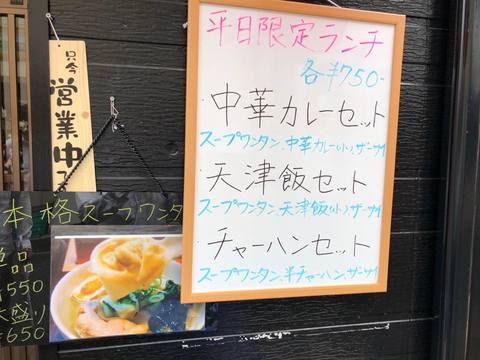 平日限定ランチ
各¥750-
・中華カレーセット
スープワンタン、中華カレー(小)、ザーサイ
・天津飯セット
スープワンタン、天津飯(小)、ザーサイ
・チャーハンセット
スープワンタン、半チャーハン、ザーサイ
只今
営業中
本格スープワンタ
単品
¥550
大盛り
¥650